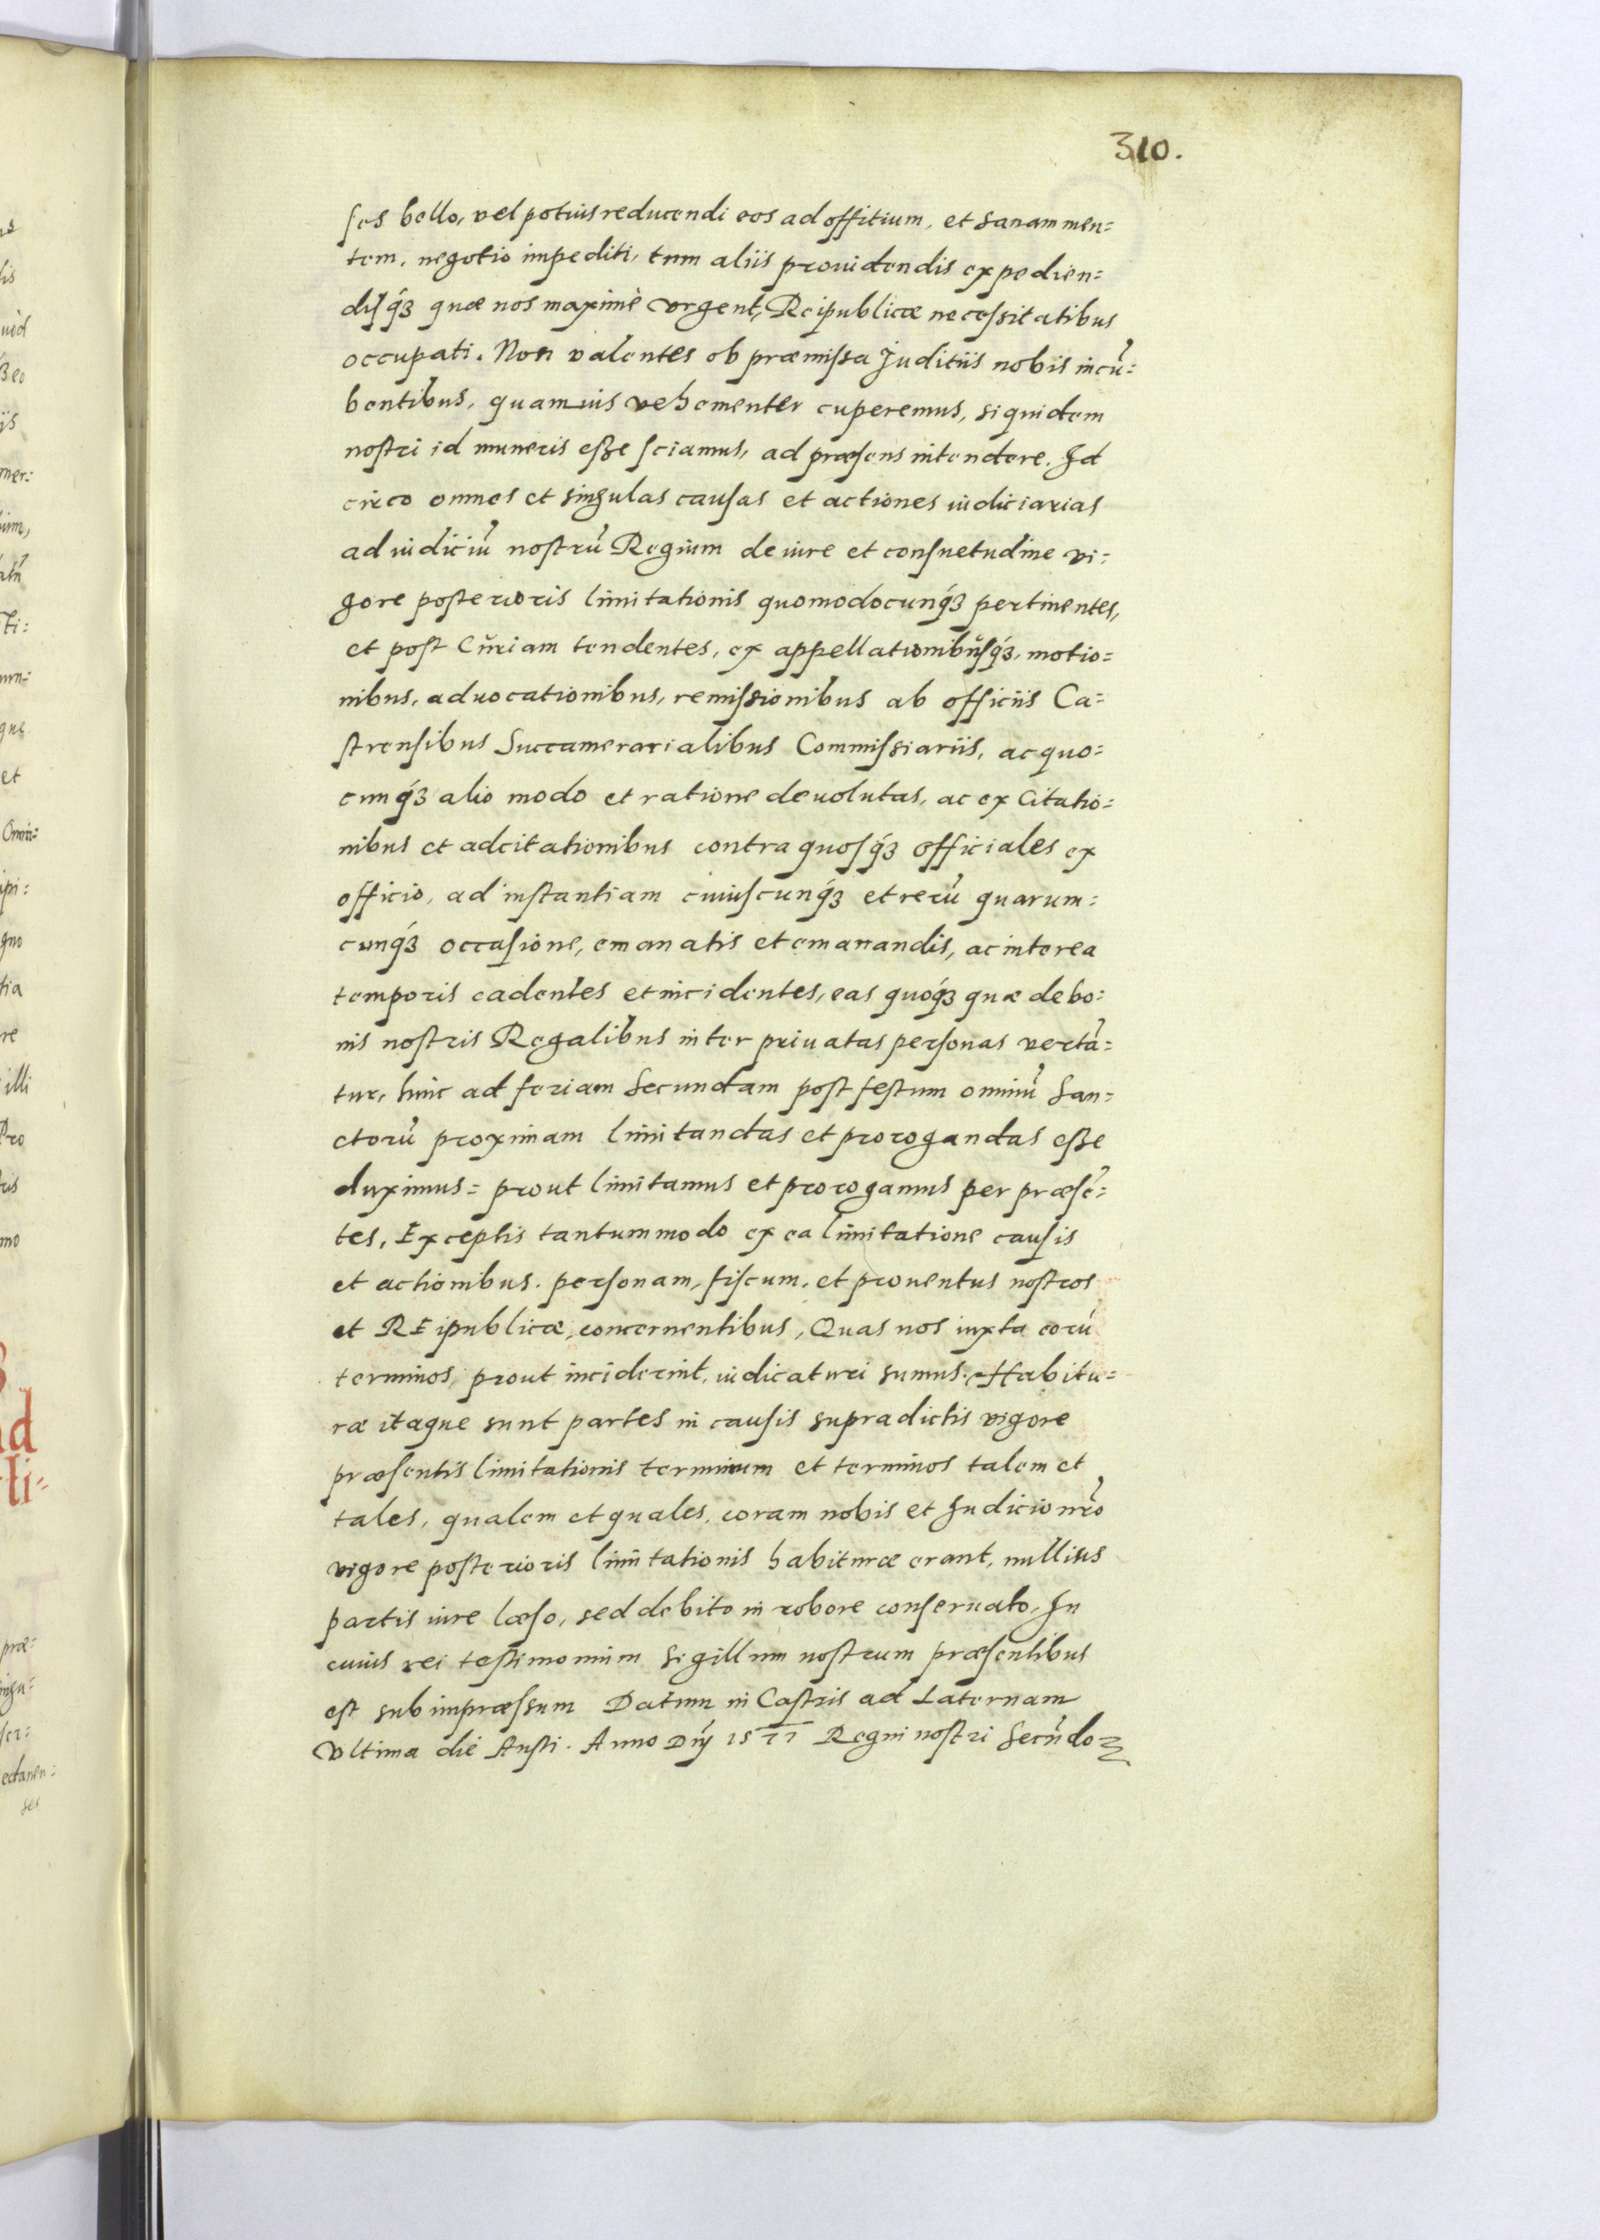 310.
ses bello, vel potius reducendi eos ad offitium, et sanam men=
tem, negotio impediti, tum aliis prouidendis expedien=
disq́ȝ quæ nos maximè vrgent, Reipublicæ necessitatibus
occupati. Non valentes ob præmissa Juditiis nobis incũ=
bentibus, quamuis vehementer cuperemus, siquidem
nostri id muneris esse sciamus, ad præsens intendere. Id
circo omnes et singulas causas et actiones iudiciarias
ad iudiciũ nostrũ Regium de iure et consuetudine vi=
gore posterioris limitationis quomodocunq́ȝ pertinentes,
et post Curiam tendentes, ex appellationibusq́ȝ, motio=
nibus, aduocationibus, remissionibus ab officiis Ca=
strensibus Succamerarialibus Commissiariis, ac quo=
cunq́ȝ alio modo et ratione deuolutas, ac ex Citatio=
nibus et adcitationibus contra quosq́ȝ officiales ex
officio, ad instantiam cuiuscunq́ȝ et rerũ quarum=
cunq́ȝ occasione, emanatis et emanandis, ac interea
temporis cadentes et incidentes, eas quoq́ȝ quæ de bo=
nis nostris Regalibus inter priuatas personas vertã=
tur, hinc ad feriam Secundam post festum omniũ San=
ctorũ proximam limitandas et prorogandas esse
duximus= prout limitamus et prorogamus per præsẽ=
tes, Exceptis tantummodo ex ea limitatione causis
et actionibus. personam, fiscum, et prouentus nostros
et REipublicæ, concernentibus, Quas nos iuxta eorũ
terminos, prout inciderint, iudicaturi sumus. Habitu=
ræ itaque sunt partes in causis supradictis vigore
præsentis limitationis terminum et terminos talem et
tales, qualem et quales, coram nobis et Judicio nr̃o
vigore posterioris limitationis habituræ erant, nullius
partis iure læso, sed debito in robore conseruato, In
cuius rei testimonium sigillum nostrum præsentibus
est subimpræssum Datum in Castris ad Laternam
Vltima die Austi. Anno Dn̄j 1577 Regni nostri Secũdo